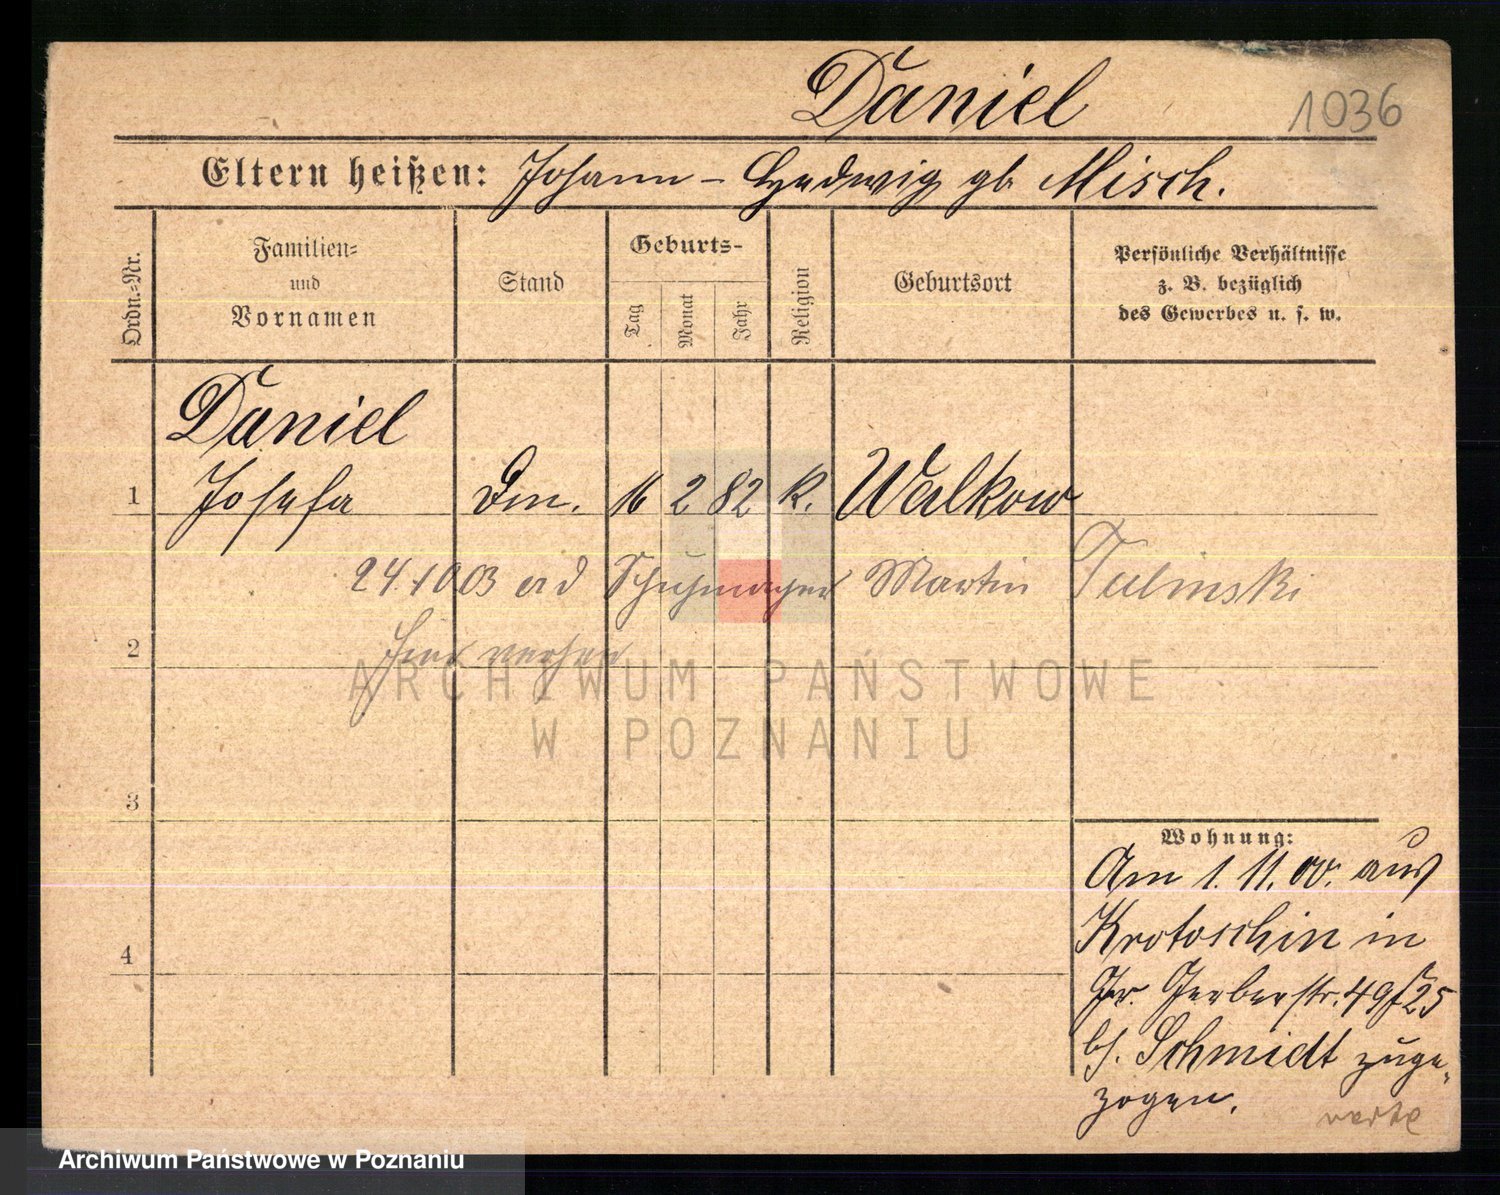 Daniel
1036
Eltern heißen: Johann - Hedwig gb Misch.
Ordn.-Nr.
Familien-
und
Vornamen
Stand
Geburts-
Tag
Monat
Jahr
Religion
Geburtsort
Persönliche Verhältnisse
z. B. bezüglich
des Gewerbes u. s. w.
Daniel
1 Josefa Dm. 16 2 82 k. Walkow
24.10.03 Schuhmacher Martin Tulinski
2
ARCHIWUM PAŃSTWOWE
W POZNANIU
3
4
Wohnung:
Am 1. 11. 00. aus
Krotoschin in
Gr. Gerberstr. 49/25
b/. Schmidt zuge-
zogen.
Archiwum Państwowe w Poznaniu